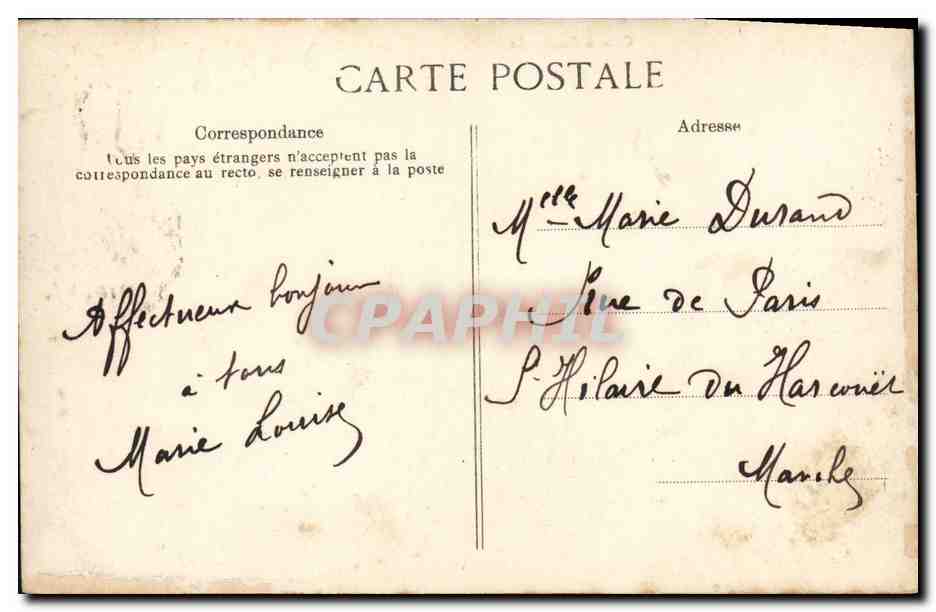 CARTE POSTALE
Correspondance
Tous les pays étrangers n'acceptent pas la
correspondance au recto, se renseigner à la poste
Affectueux bonjour
à tous
Marie Louise
Adresse
Melle Marie Durand
Rue de Paris
St Hilaire du Harcouët
Manche
CPAPHIL